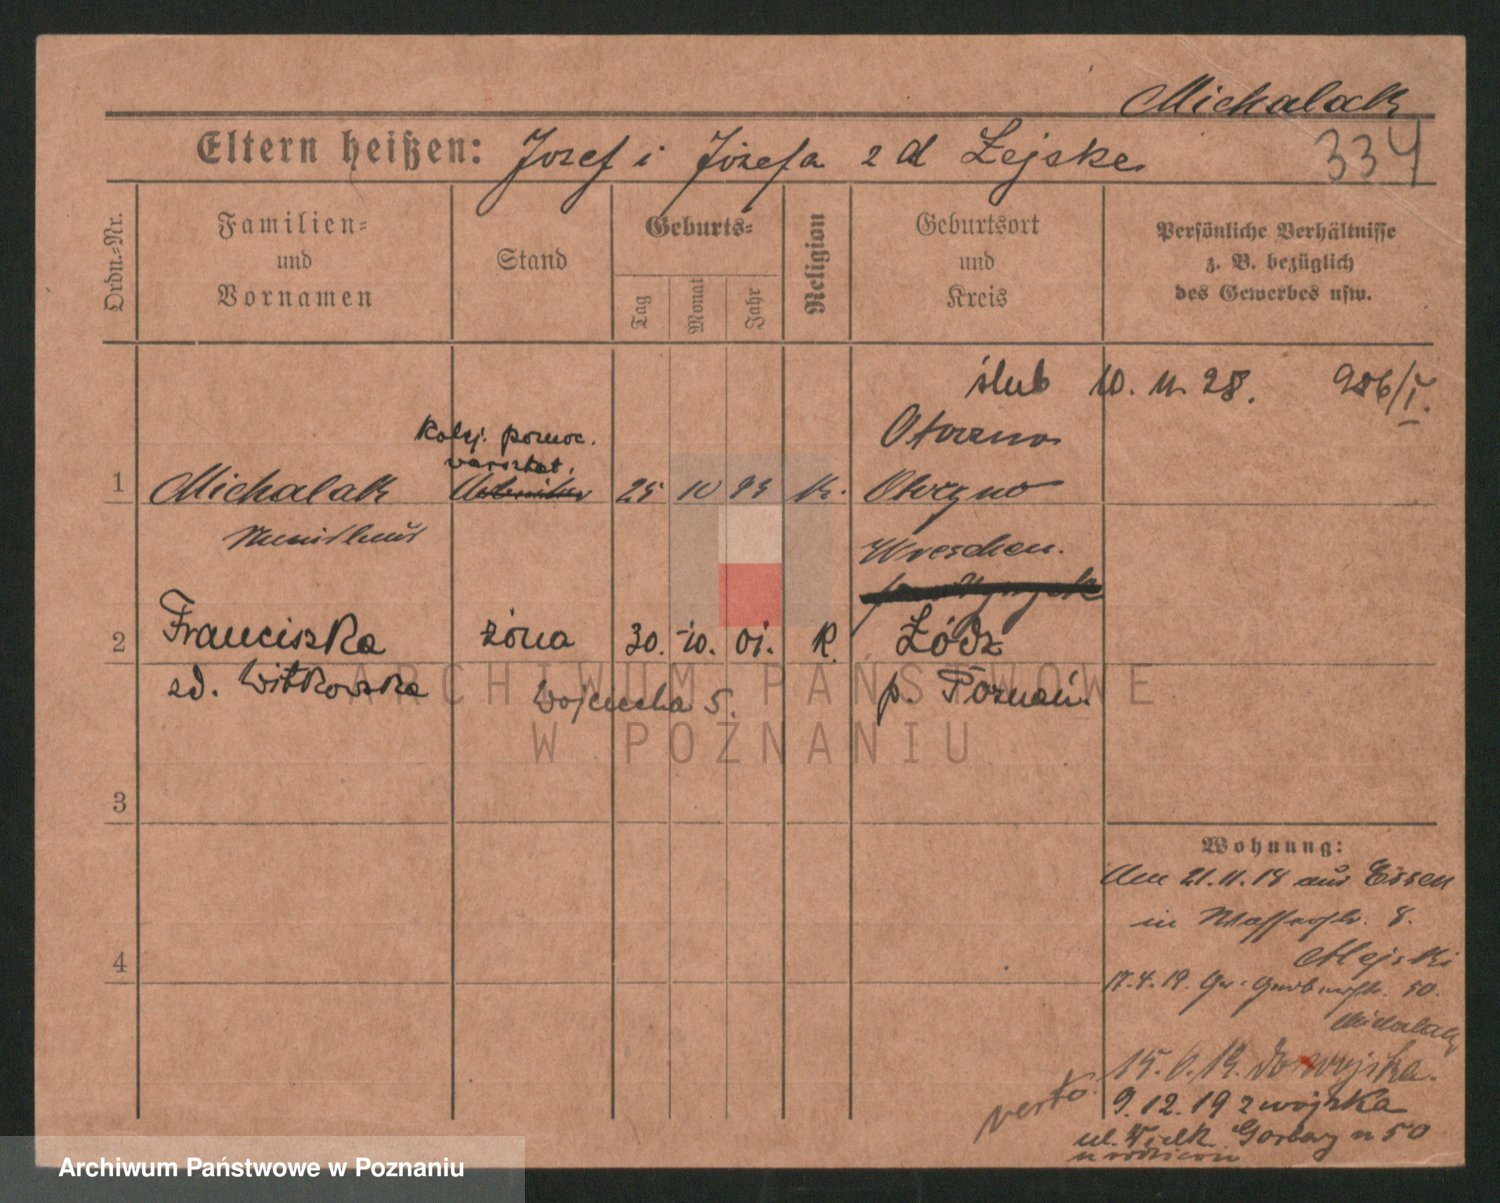 Michalak
334
Eltern heißen: Jozef i Józefa z d Lejske
Ordn.-Nr.
Familien-
und
Vornamen
Stand
Geburts-
Tag
Monat
Jahr
Religion
Geburtsort
und
Kreis
Persönliche Verhältnisse
z. B. bezüglich
des Gewerbes usw.
ślub 10. 11. 28. 986/I.
kolej. pomoc.
warsztat.
Otoczno
1 Michalak 25 10 99 K.
Wreschen.
2 Franciszka żona 30. 10. 01. K. Łódź
zd. Witkowska
Wojciecha 5.
p. Poznań.
3
4
Wohnung:
Am 21.11.18 aus Essen
in 8.
17.4.19. Gr. Gerberstr. 50.
Michalak
15.6.19. do wojska.
verto.
9.12.19 z wojska
ul. Wielk. Garbary n 50
u rodziców
ARCHIWUM PAŃSTWOWE
W POZNANIU
Archiwum Państwowe w Poznaniu